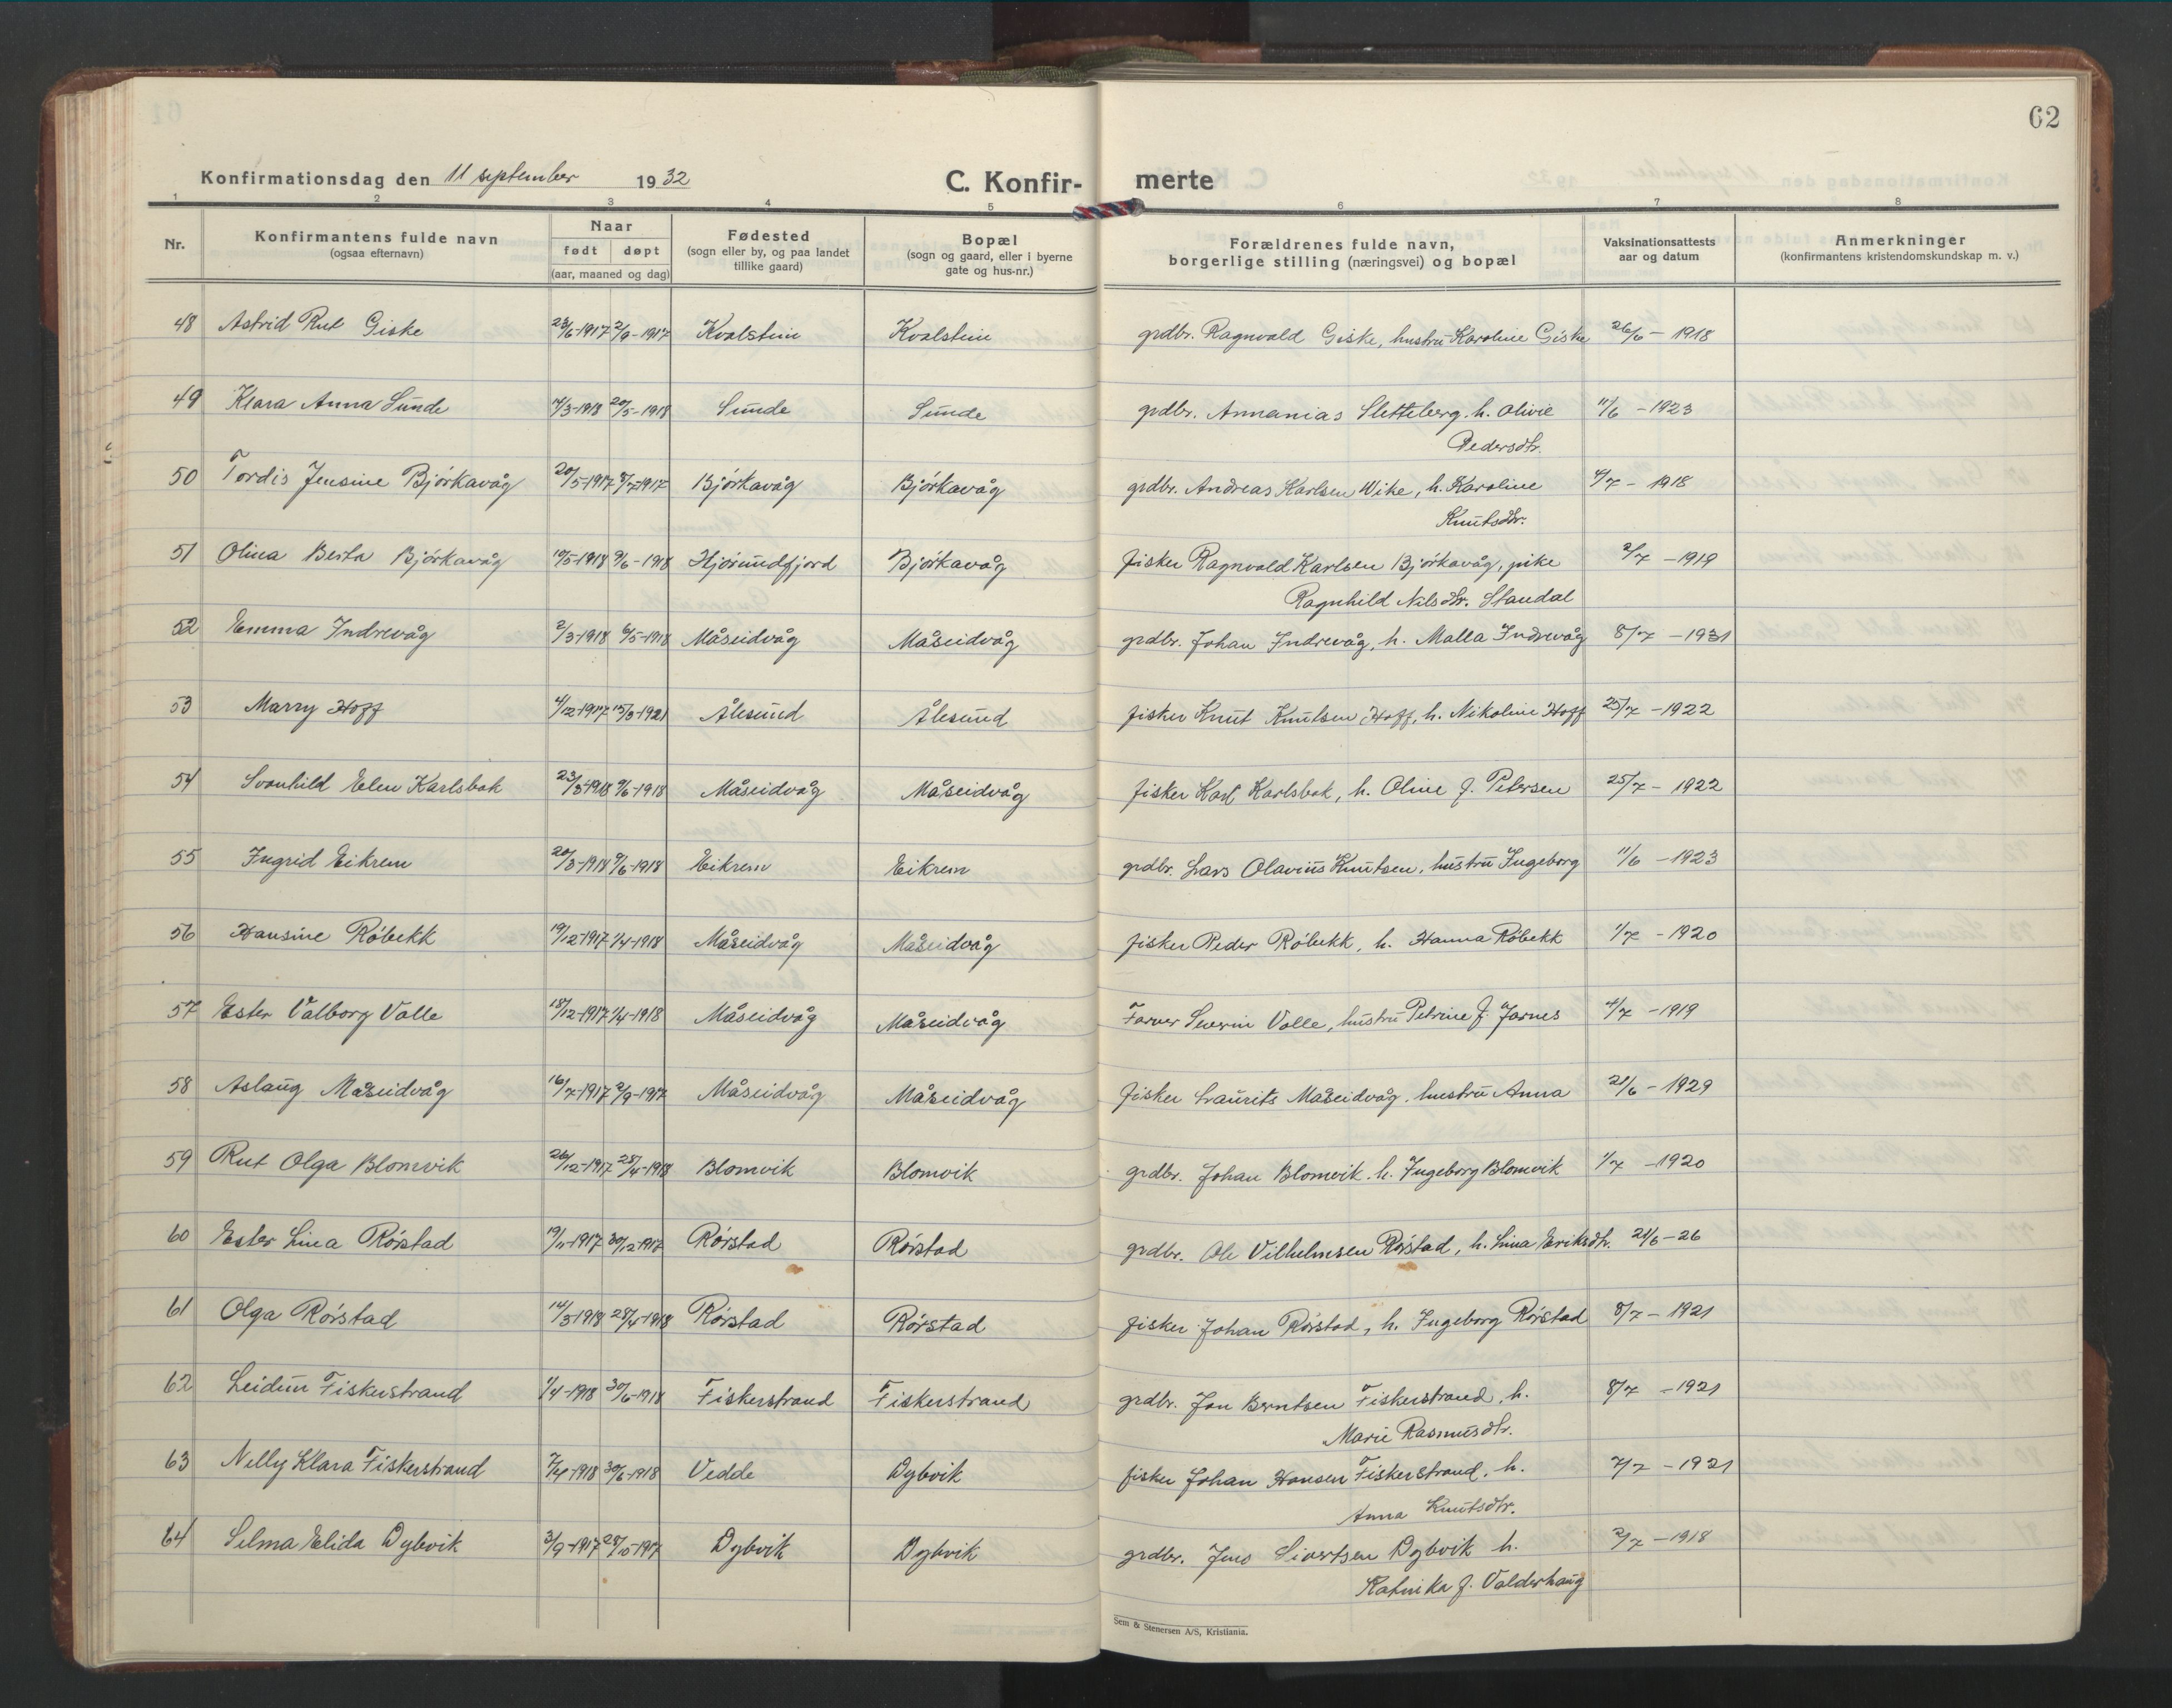 62
Konfirmationsdag den 11 september 1932 C. Konfir- merte
1 2 3 4 5 6 7 8
Nr. Konfirmantens fulde navn (ogsaa efternavn) Naar født døpt (aar, maaned og dag) Fødested (sogn eller by, og paa landet tillike gaard) Bopæl (sogn og gaard, eller i byerne gate og hus-nr.) Forældrenes fulde navn, borgerlige stilling (næringsvei) og bopæl Vaksinationsattests aar og datum Anmerkninger (konfirmantens kristendomskundskap m. v.)
48 Astrid Rut Giske 23/6-1917 2/9-1917 Kvalstein Kvalstein grdbr. Ragnvald Giske, hustru Karoline Giske 26/6 - 1918
49 Klara Anna Sunde 14/3-1918 20/5-1918 Sunde Sunde grdbr. Annanias Sletteberg. h. Olivie 11/6 - 1923
Pedersdtr.
50 Tordis Jensine Bjórkavåg 20/5-1917 8/7-1917 Bjórkavåg Bjórkavåg grdbr. Andreas Karlsen Wike, h. Karoline 4/7 - 1918
Knutsdtr.
51 Olina Berta Bjórkavåg 10/5-1918 9/6-1918 Hjórundfjord Bjórkavåg fisker Ragnvald Karlsen Bjórkavåg, pike 2/7 - 1919
Ragnhild Nilsdtr. Standal
52 Emma Indrevåg 2/3-1918 6/5-1918 Måseidvåg Måseidvåg grdbr. Johan Indrevåg, h. Malla Indrevåg 8/7 - 1931
53 Marry Hoff 4/12-1917 15/3-1921 Ålesund Ålesund fisker Knut Knutsen Hoff, h. Nikoline Hoff 25/7 - 1922
54 Svanhild Elen Karlsbak 23/3-1918 9/6-1918 Måseidvåg Måseidvåg fisker Karl Karlsbak, h. Oline f. Petersen 25/7 - 1922
55 Ingrid Eikrem 20/3-1918 9/6-1918 Eikrem Eikrem grdbr. Lars Olavius Knutsen, hustru Ingeborg 11/6 - 1923
56 Hansine Róbekk 19/12-1917 1/4-1918 Måseidvåg Måseidvåg fisker Peder Róbekk, h. Hanna Róbekk 1/7 - 1920
57 Ester Valborg Valle 18/12-1917 1/4-1918 Måseidvåg Måseidvåg Farver Severin Valle, hustru Petrine f. Jarnes 4/7 - 1919
58 Aslaug Måseidvåg 16/7-1917 2/9-1917 Måseidvåg Måseidvåg fisker Laurits Måseidvåg, hustru Anna 21/6 - 1929
59 Rut Olga Blomvik 26/12-1917 28/4-1918 Blomvik Blomvik grdbr. Johan Blomvik. h. Ingeborg Blomvik 1/7 - 1920
60 Ester Lina Rórstad 19/11-1917 30/12-1917 Rórstad Rórstad grdbr. Ole Vilhelmsen Rórstad, h. Lina Eriksdtr. 21/6 - 26
61 Olga Rórstad 14/3-1918 28/4-1918 Rórstad Rórstad fisker Johan Rórstad, h. Ingeborg Rórstad 8/7 - 1921
62 Leidun Fiskerstrand 1/4-1918 30/6-1918 Fiskerstrand Fiskerstrand grdbr. Jon Berntsen Fiskerstrand, h. 8/7 - 1921
Marie Rasmusdtr.
63 Nelly Klara Fiskerstrand 7/4-1918 30/6-1918 Vedde Dybvik fisker Johan Hansen Fiskerstrand, h. 7/7 - 1921
Anna Knutsdtr.
64 Selma Elida Dybvik 3/9-1917 28/10-1917 Dybvik Dybvik grdbr. Jens Sivertsen Dybvik h. 2/7 - 1918
Katinka f. Valderhaug
Sem & Stenersen A/S, Kristiania.